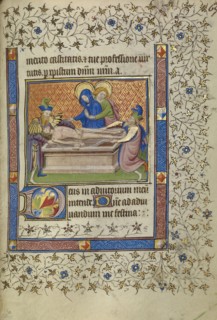 mento castitatis. & tue professione vir
tutis. p xpistum dnm nrm. A
Deus in adiutorium meu
intende. Dne ad adiu
uandum me festina